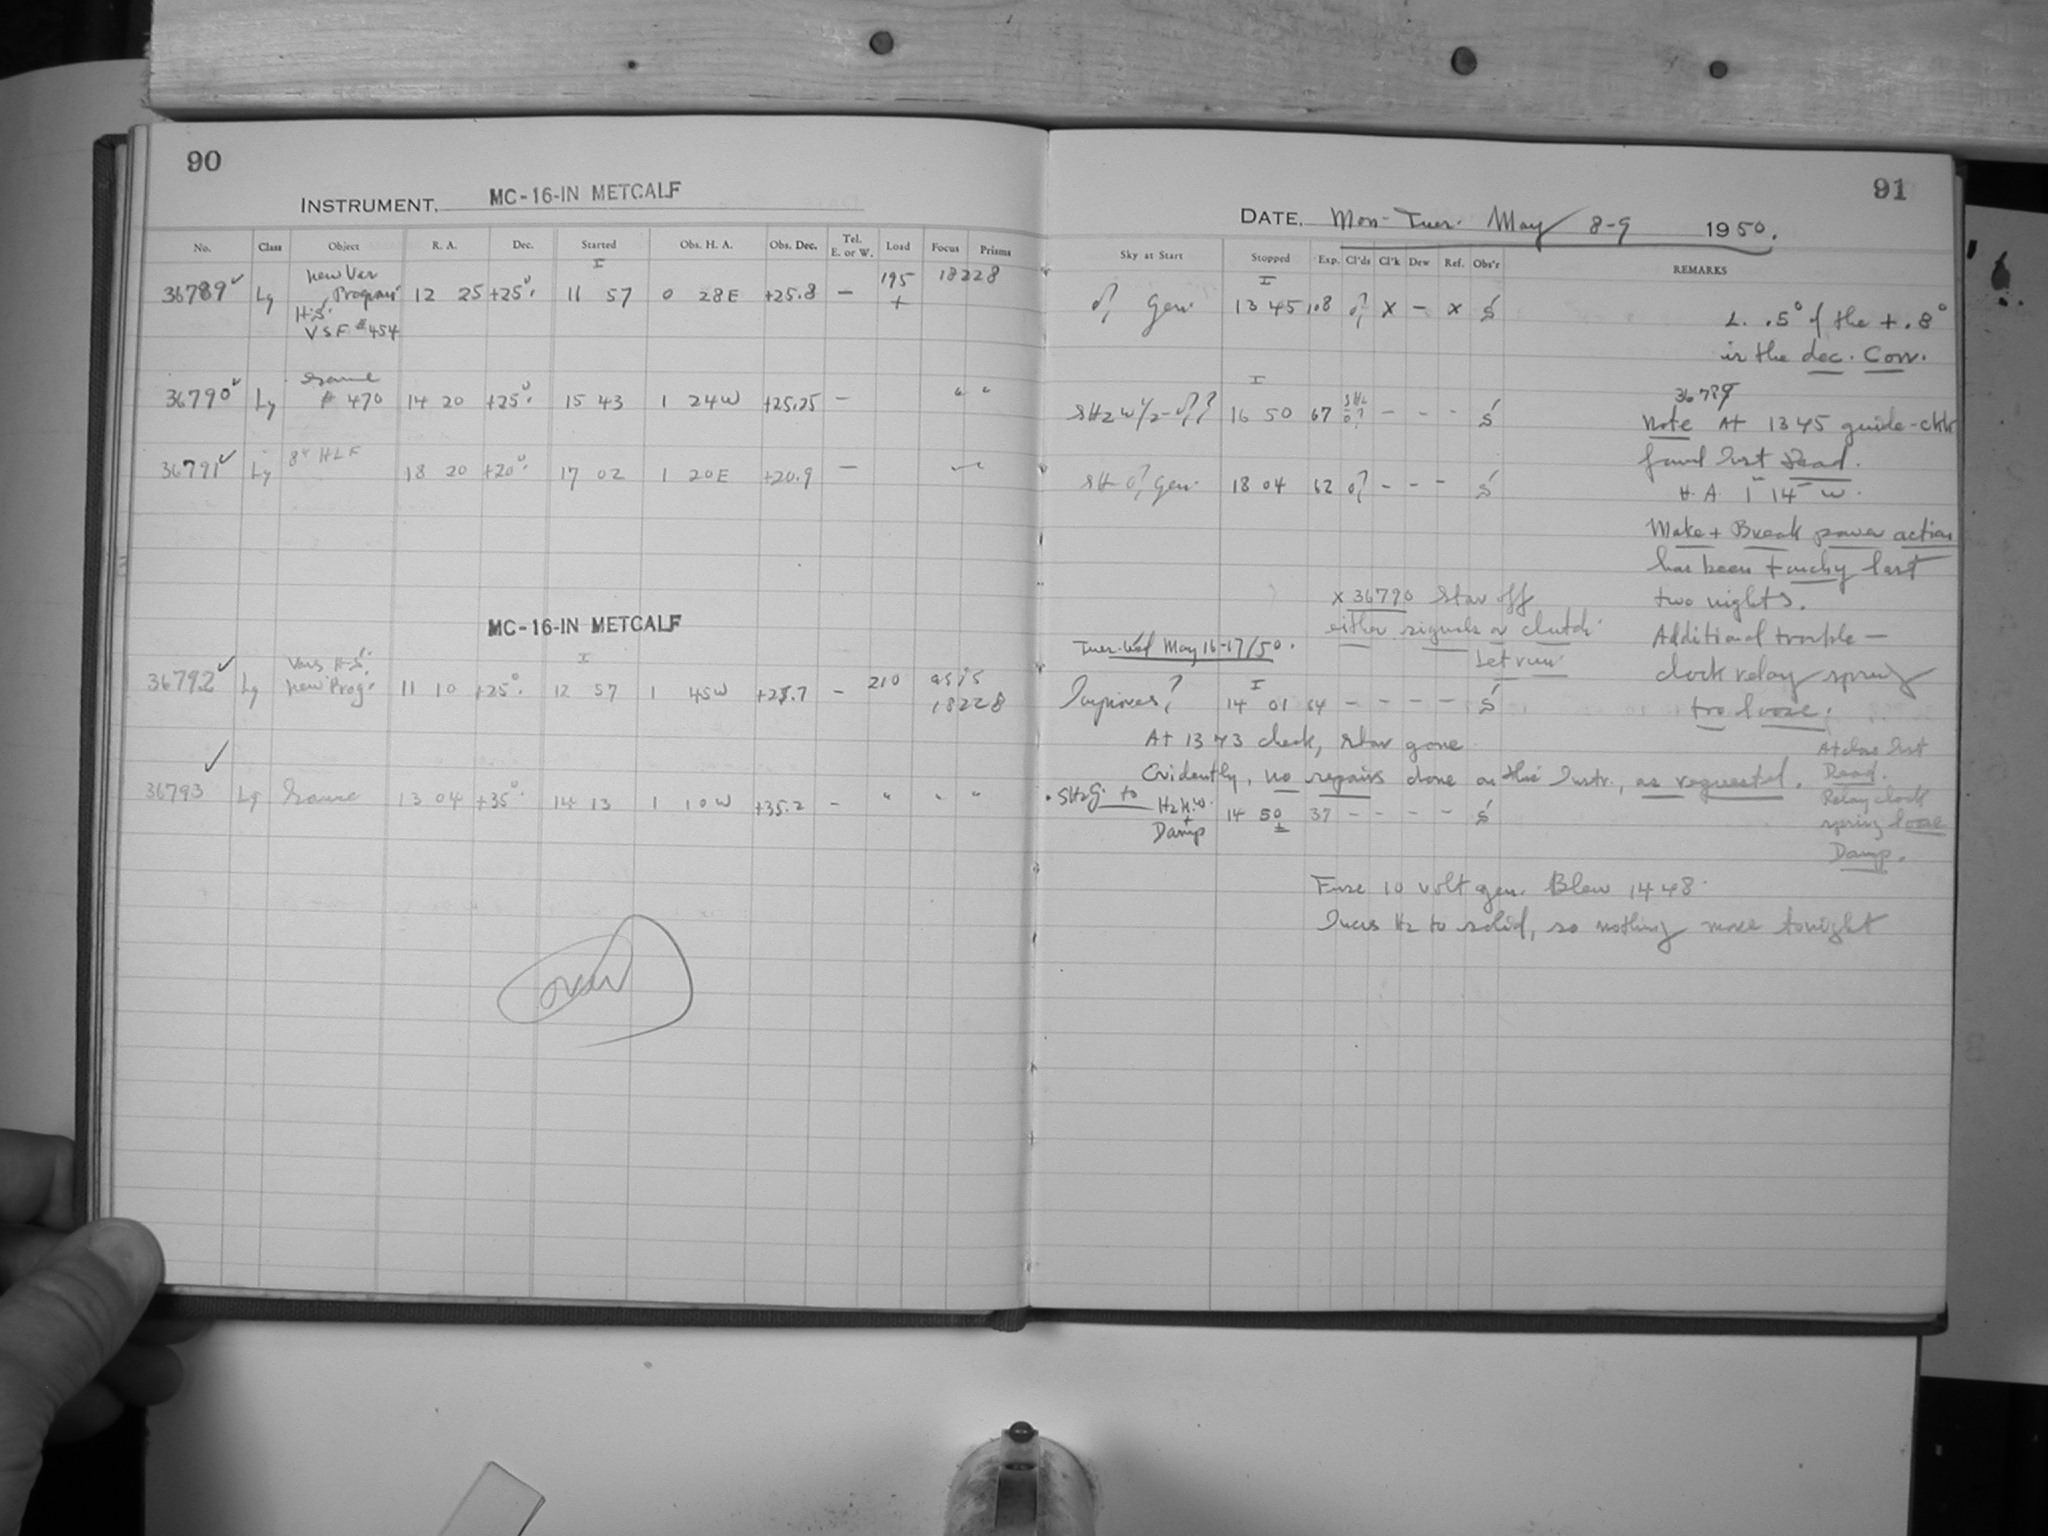 90
INSTRUMENT, MC-16-IN METCALF
No. Class Object R. A. Dec. Started Obs. H. A. Obs. Dec. Tel. E. or W. Load Focus Prisms
36789 ✓ Ly New Var Program H.S. VSF #454 12 25 +25° I 11 57 0 28E +25.8 – 195 + 18228
36790 ✓ Ly Same # 470 14 20 +25° 15 43 1 24W +25.25 – " "
36791 ✓ Ly 8x HLF 18 20 +20° 17 02 1 20E +20.9 –
MC-16-IN METCALF
36792 ✓ Ly Vars H.S. New Prog. 11 10 +25° I 12 57 1 45W – 210 as is 18228
36793 ✓ Ly Same 13 04 +35° 14 13 1 10W +35.2 – " " "
over
91
DATE, Mon-Tues. May 8-9 1950.
Sky at Start Stopped Exp. Cl'ds Cl'k Dew Ref. Obs'r REMARKS
Gen. I 13 45 108 X – X S
L. .5° of the +.8°
in the dec. Corr.
I 16 50 67 – – – S
36789
Note At 1345 guide-ckk
found Inst Dead.
H.A. 1 14 W.
Gen. 18 04 62 – – – S
Make + Break power action
has been touchy last
two nights.
Additional trouble –
clock relay spring
too loose.
x 36790 Star off
either signals or clutch.
Let run
Tues-Wed May 16-17/50.
Improves? I 14 01 64 – – – – S
At 1343 check, star gone
Evidently, no repairs done on this Instr., as requested.
SH2G. to H2 H.W. + Damp 14 50 ± 37 – – – – S
At close Inst
Dead.
Relay clock
spring loose
Damp.
Fuse 10 volt gen. Blew 1448.
Incrs H2 to solid, so nothing more tonight